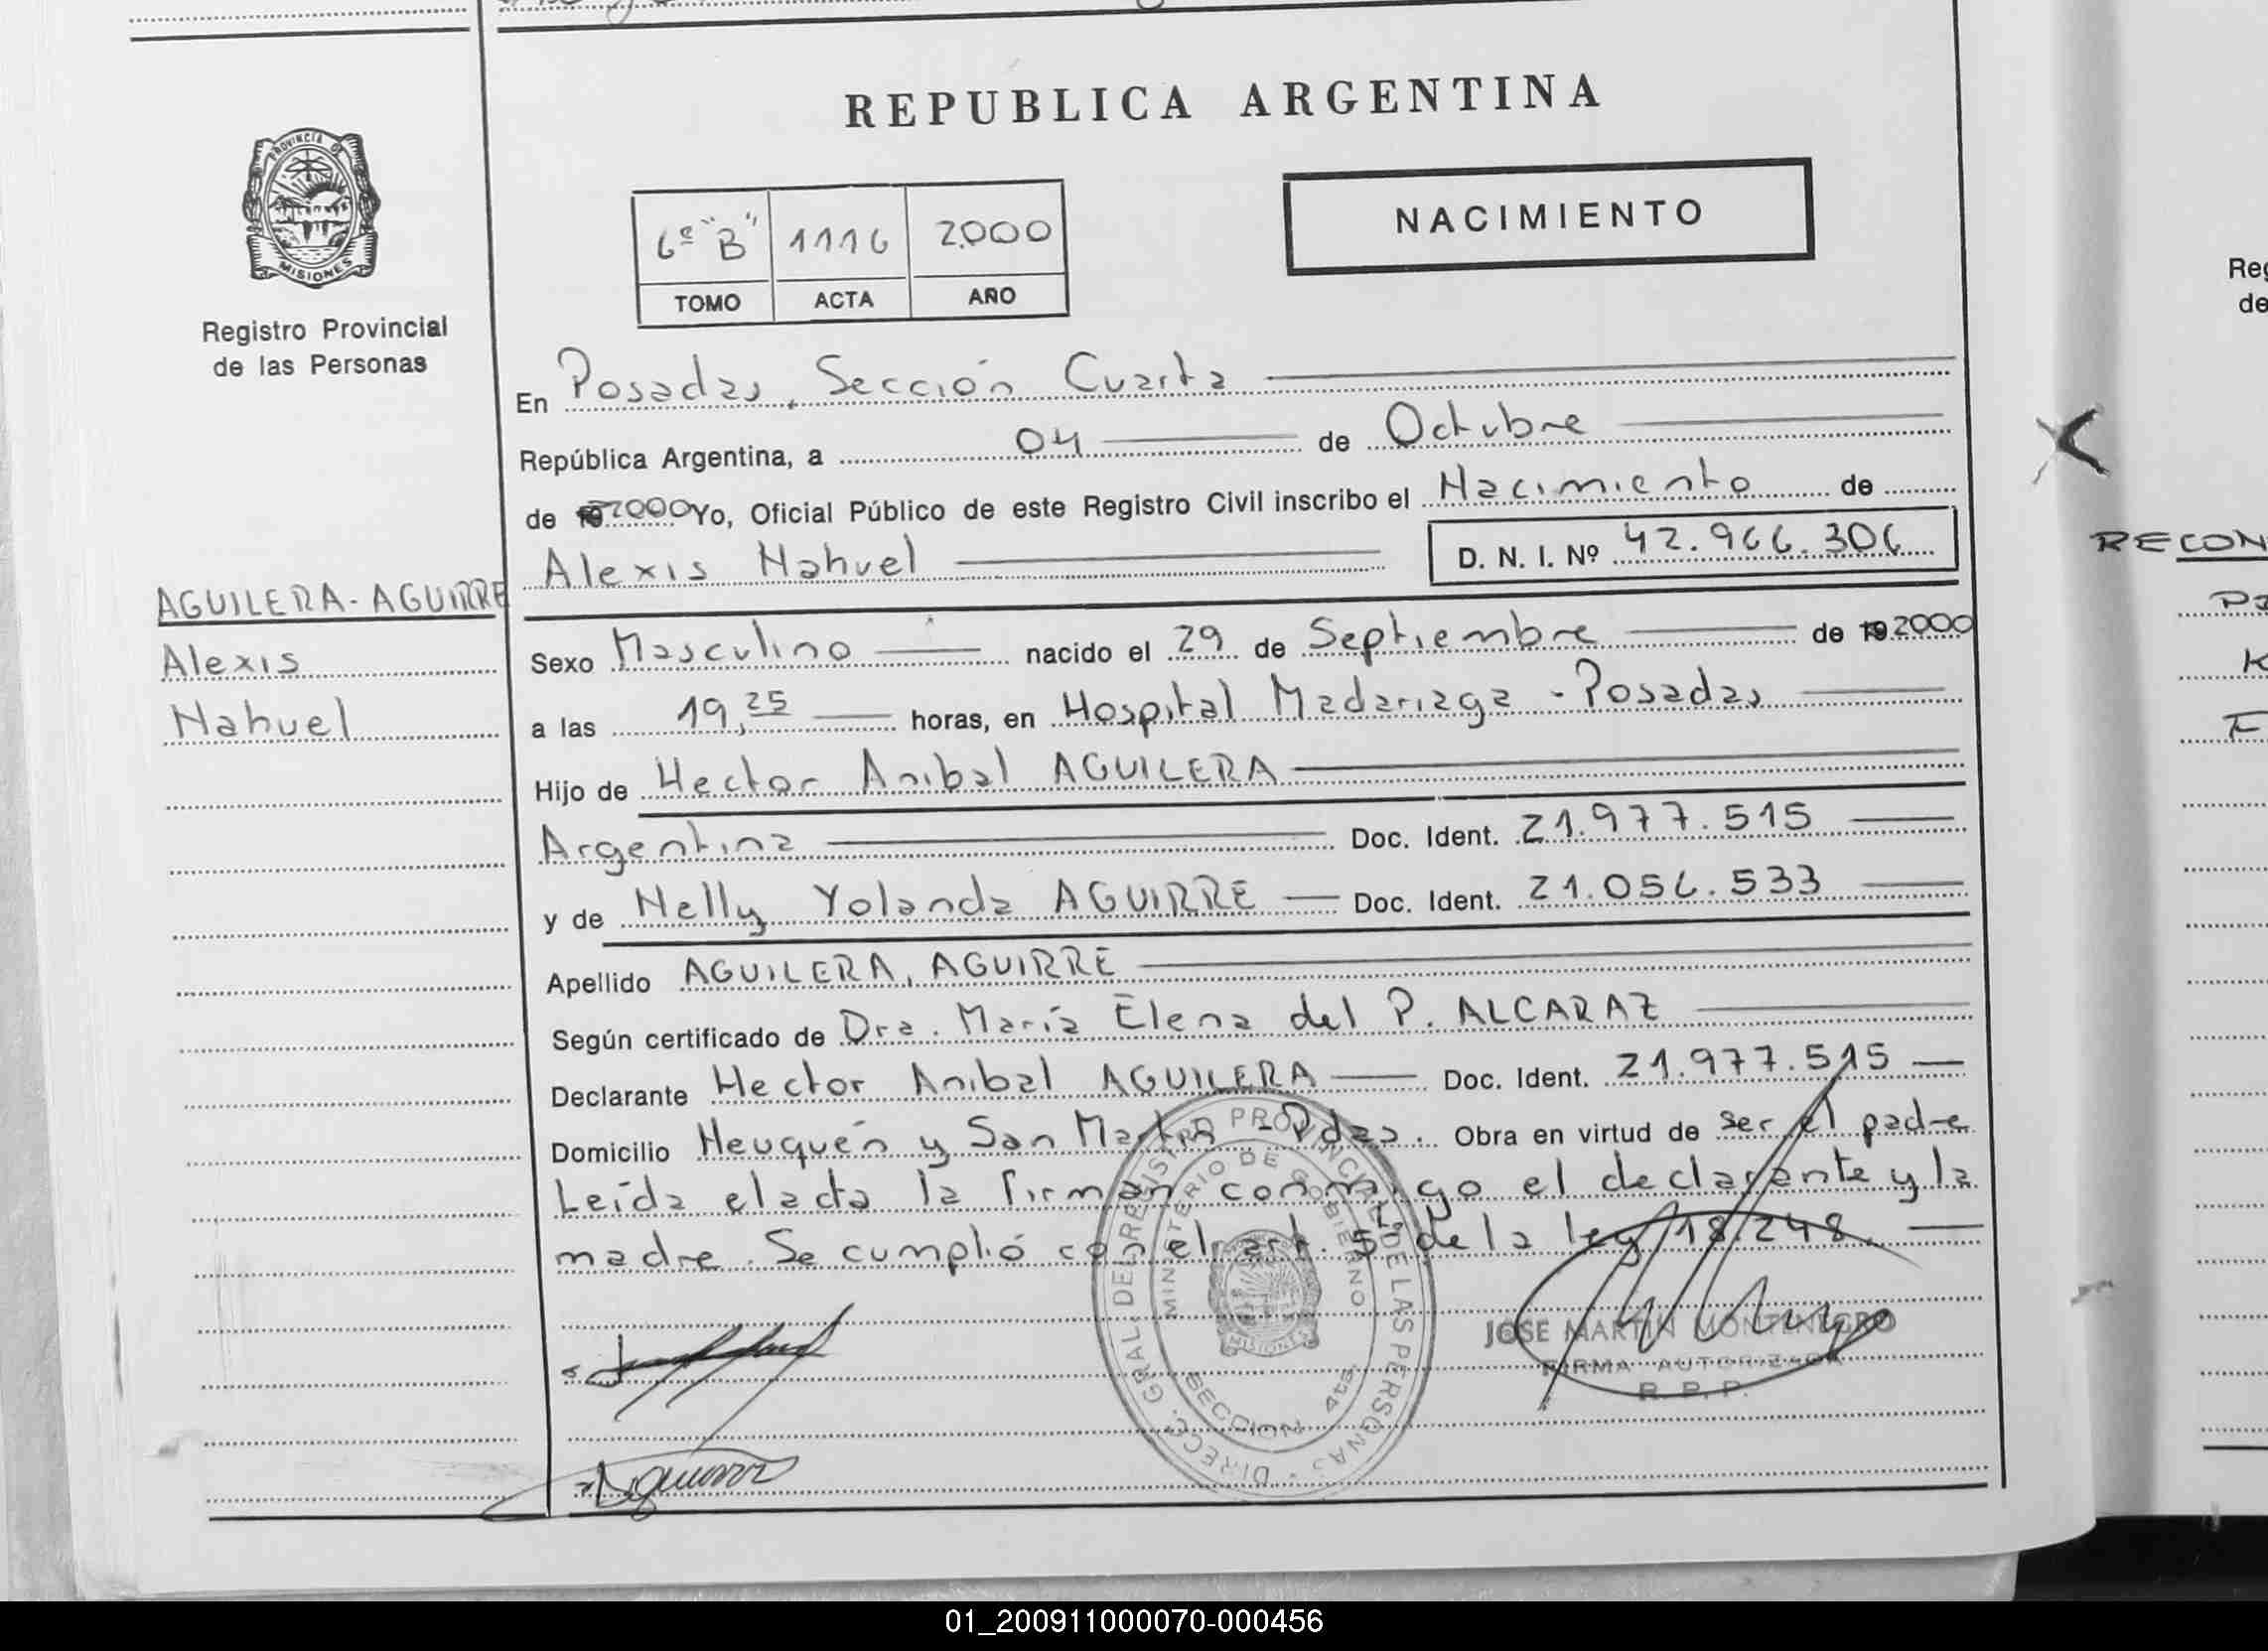 REPUBLICA ARGENTINA
PROVINCIA DE
MISIONES
Registro Provincial
de las Personas
6º "B" 1116 2.000
TOMO ACTA AÑO
NACIMIENTO
En Posadas, Sección Cuarta
República Argentina, a 04 de Octubre
de 19 2000 Yo, Oficial Público de este Registro Civil inscribo el Nacimiento de
Alexis Nahuel D. N. I. Nº 42.966.306
AGUILERA - AGUIRRE
Alexis
Nahuel
Sexo Masculino nacido el 29 de Septiembre de 19 2000
a las 19,25 horas, en Hospital Madariaga - Posadas
Hijo de Hector Anibal AGUILERA
Argentina Doc. Ident. 21.977.515
y de Nelly Yolanda AGUIRRE Doc. Ident. 21.056.533
Apellido AGUILERA, AGUIRRE
Según certificado de Dra. María Elena del P. ALCARAZ
Declarante Hector Anibal AGUILERA Doc. Ident. 21.977.515
Domicilio Neuquén y San Martin - Pdas. Obra en virtud de ser el padre
Leída el acta la firman conmigo el declarante y la
madre. Se cumplió con el art. 5º de la ley 18.248.
DIRECC. GRAL. DEL REGISTRO PROVINCIAL DE LAS PERSONAS
MINISTERIO DE GOBIERNO
MISIONES
SECCION 4ta.
JOSE MARTIN MONTENEGRO
FIRMA AUTORIZADA
R. P. P.
Aguirre
Reg
de
RECON
01_200911000070-000456